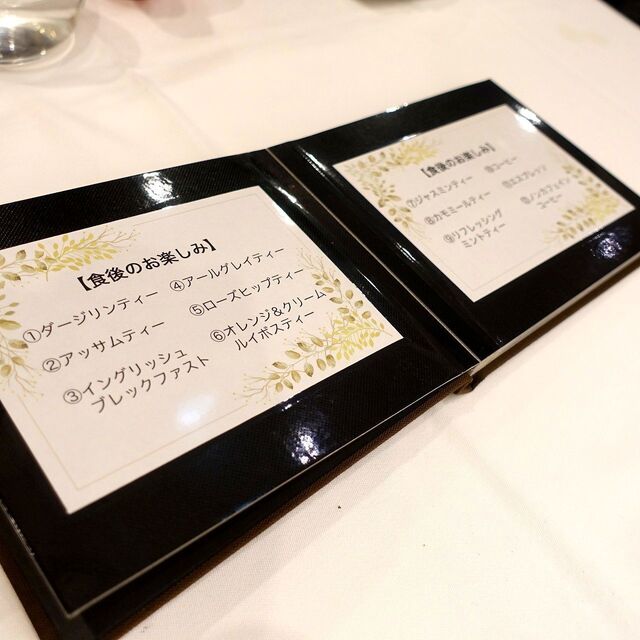 【食後のお楽しみ】
①ダージリンティー
②アッサムティー
③イングリッシュ
ブレックファスト
④アールグレイティー
⑤ローズヒップティー
⑥オレンジ&クリーム
ルイボスティー
【食後のお楽しみ】
⑦ジャスミンティー
⑧カモミールティー
⑨リフレッシング
ミントティー
⑩コーヒー
⑪エスプレッソ
⑫ノンカフェイン
コーヒー